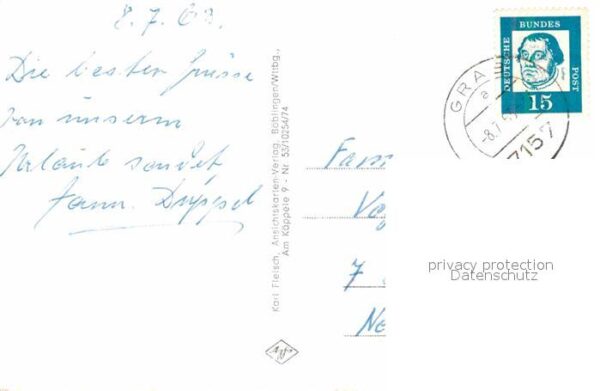 8.7.63.
Die besten Grüsse
von unserm
Urlaub sendet
Fam. Düppel
Karl Fleisch, Ansichtskarten-Verlag, Böblingen/Wttbg.,
Am Käppele 9 - Nr. 53/10254/74
Agfa
DEUTSCHE BUNDES POST
15
GRA
a
-8.7
7157
Fam
7
Ne
privacy protection
Datenschutz